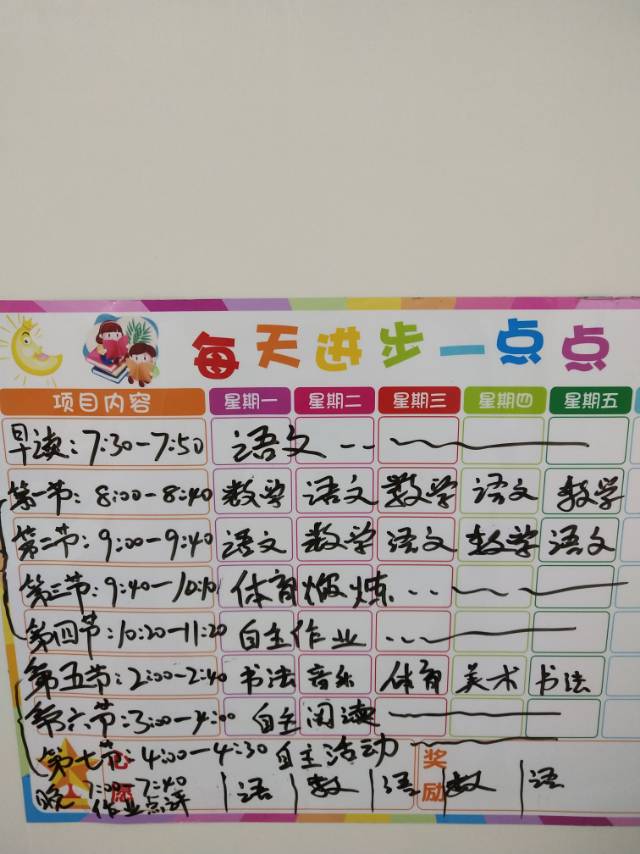 每天进步一点点
项目内容 星期一 星期二 星期三 星期四 星期五
早读:7:30-7:50 语文
第一节:8:00-8:40 数学 语文 数学 语文 数学
第二节:9:00-9:40 语文 数学 语文 数学 语文
第三节:9:40-10:10 体育煅炼
第四节:10:20-11:20 自主作业
第五节:2:00-2:40 书法 音乐 体育 美术 书法
第六节:3:00-4:00 自主阅读
第七节:4:00-4:30 自主活动
晚 7:00-7:40 语 数 语 数 语
作业点评
心愿
奖励